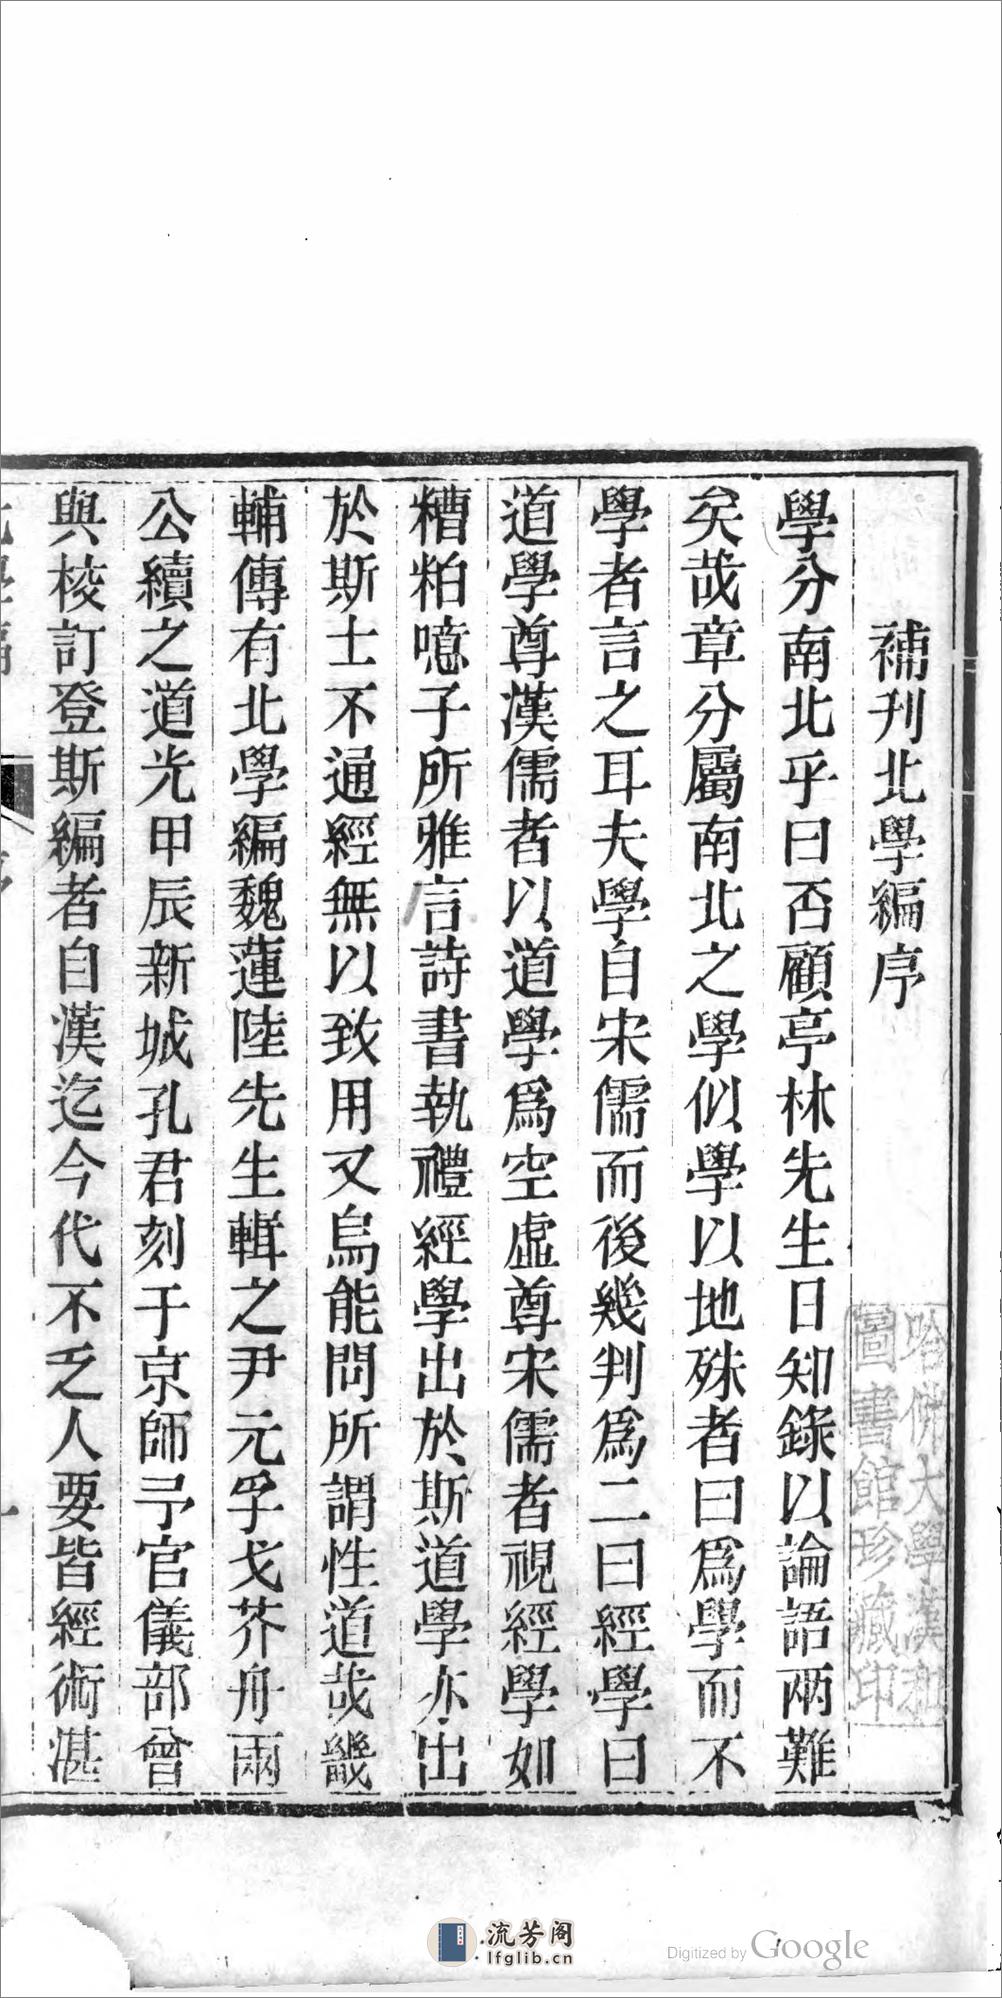 補刊北學編序
學分南北乎曰否顧亭林先生日知錄以論語兩難
矣哉章分屬南北之學似學以地殊者曰爲學而不
學者言之耳夫學自宋儒而後幾判爲二曰經學曰
道學尊漢儒者以道學爲空虛尊宋儒者視經學如
糟粕噫子所雅言詩書執禮經學出於斯道學亦出
於斯士不通經無以致用又烏能問所謂性道哉畿
輔傳有北學編魏蓮陸先生輯之尹元孚戈芥舟兩
公續之道光甲辰新城孔君刻于京師予官儀部曾
與校訂登斯編者自漢迄今代不乏人要皆經術湛
哈佛大學漢和
圖書館珍藏印
流芳阁
lfglib.cn
Digitized by Google